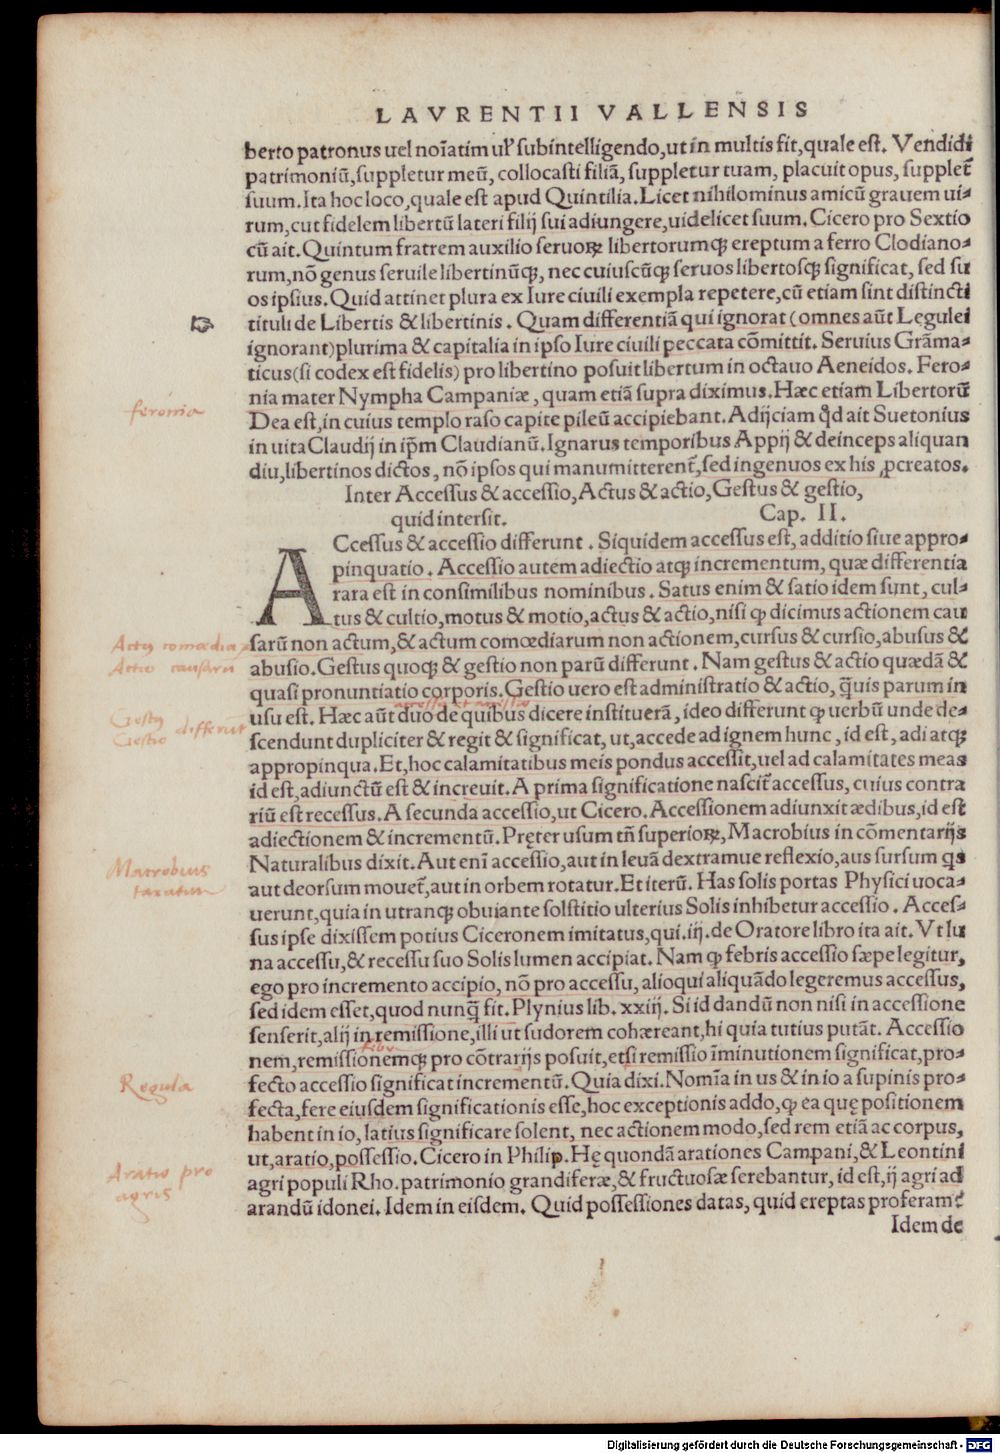 LAVRENTII VALLENSIS
berto patronus uel noīatim ul' subintelligendo,ut in multis fit,quale est. Vendidi
patrimoniū,suppletur meū, collocasti filiā, suppletur tuam, placuit opus, supplet᷑
suum.Ita hoc loco,quale est apud Quintilia.Licet nihilominus amicū grauem ui-
rum,cut fidelem libertū lateri filij sui adiungere,uidelicet suum.Cicero pro Sextio
cū ait.Quintum fratrem auxilio seruoꝝ libertorumqꝫ ereptum a ferro Clodiano-
rum,nō genus seruile libertinūqꝫ, nec cuiuscūqꝫ seruos libertosqꝫ significat, sed su
os ipsius.Quid attinet plura ex Iure ciuili exempla repetere,cū etiam sint distincti
☞ tituli de Libertis & libertinis . Quam differentiā qui ignorat (omnes aūt Legulei
ignorant)plurima & capitalia in ipso Iure ciuili peccata cōmittit. Seruius Grāma-
ticus(si codex est fidelis) pro libertino posuit libertum in octauo Aeneidos. Fero-
nia mater Nympha Campaniæ, quam etiā supra diximus.Hæc etiam Libertorū
feronia
Dea est,in cuius templo raso capite pileū accipiebant.Adijciam qd̄ ait Suetonius
in uita Claudij in ip̄m Claudianū.Ignarus temporibus Appij & deinceps aliquan
diu,libertinos dictos, nō ipsos qui manumitterent᷑,sed ingenuos ex his ꝓcreatos.
Inter Accessus & accessio,Actus & actio,Gestus & gestio,
quid intersit. Cap. II.
ACcessus & accessio differunt . Siquidem accessus est, additio siue appro-
pinquatio . Accessio autem adiectio atqꝫ incrementum, quæ differentia
rara est in consimilibus nominibus . Satus enim & satio idem sunt, cul-
tus & cultio,motus & motio,actus & actio,nisi ꝙ dicimus actionem cau
Actus comœdiaꝝ
Actio causarū
sarū non actum,& actum comœdiarum non actionem,cursus & cursio,abusus &
abusio.Gestus quoqꝫ & gestio non parū differunt . Nam gestus & actio quædā &
quasi pronuntiatio corporis.Gestio uero est administratio & actio, q̄uis parum in
Gestus
Gestio differūt
usu est. Hæc aūt duo de quibus dicere institueram, ideo differunt ꝙ uerbū unde de-
scendunt dupliciter & regit & significat, ut,accede ad ignem hunc , id est, adi atqꝫ
appropinqua. Et,hoc calamitatibus meis pondus accessit,uel ad calamitates meas
id est,adiunctū est & increuit.A prima significatione nascit᷑ accessus, cuius contra
riū est recessus.A secunda accessio,ut Cicero. Accessionem adiunxit ædibus,id est
adiectionem & incrementū. Pręter usum tn̄ superioꝝ,Macrobius in cōmentarijs
Naturalibus dixit.Aut eni accessio,aut in leuā dextramue reflexio,aus sursum q̄s
Macrobius
taxatur
aut deorsum mouet᷑,aut in orbem rotatur.Et iterū. Has solis portas Physici uoca-
uerunt,quia in utranqꝫ obuiante solstitio ulterius Solis inhibetur accessio . Acces-
sus ipse dixissem potius Ciceronem imitatus,qui.iij.de Oratore libro ita ait. Vt lu
na accessu,& recessu suo Solis lumen accipiat. Nam ꝙ febris accessio sæpe legitur,
ego pro incremento accipio, nō pro accessu, alioqui aliquādo legeremus accessus,
sed idem esset,quod nunq̄ fit. Plynius lib. xxiij. Si id dandū non nisi in accessione
senserit,alij in remissione,illi ut sudorem cohæreant,hi quia tutius putāt. Accessio
nem,remissionemqꝫ pro cōtrarijs posuit,etsi remissio īminutionem significat,pro-
Regula
fecto accessio significat incrementū. Quia dixi.Nomīa in us & in io a supinis pro-
fecta,fere eiusdem significationis esse,hoc exceptionis addo,ꝙ ea quę positionem
habent in io, latius significare solent, nec actionem modo,sed rem etiā ac corpus,
ut,aratio,possessio.Cicero in Philip.Hę quondā arationes Campani,& Leontini
Aratio pro
agris
agri populi Rho.patrimonio grandiferæ,& fructuosæ serebantur, id est,ij agri ad
arandū idonei. Idem in eisdem. Quid possessiones datas, quid ereptas proferam᷑
Idem de
Digitalisierung gefördert durch die Deutsche Forschungsgemeinschaft - DFG